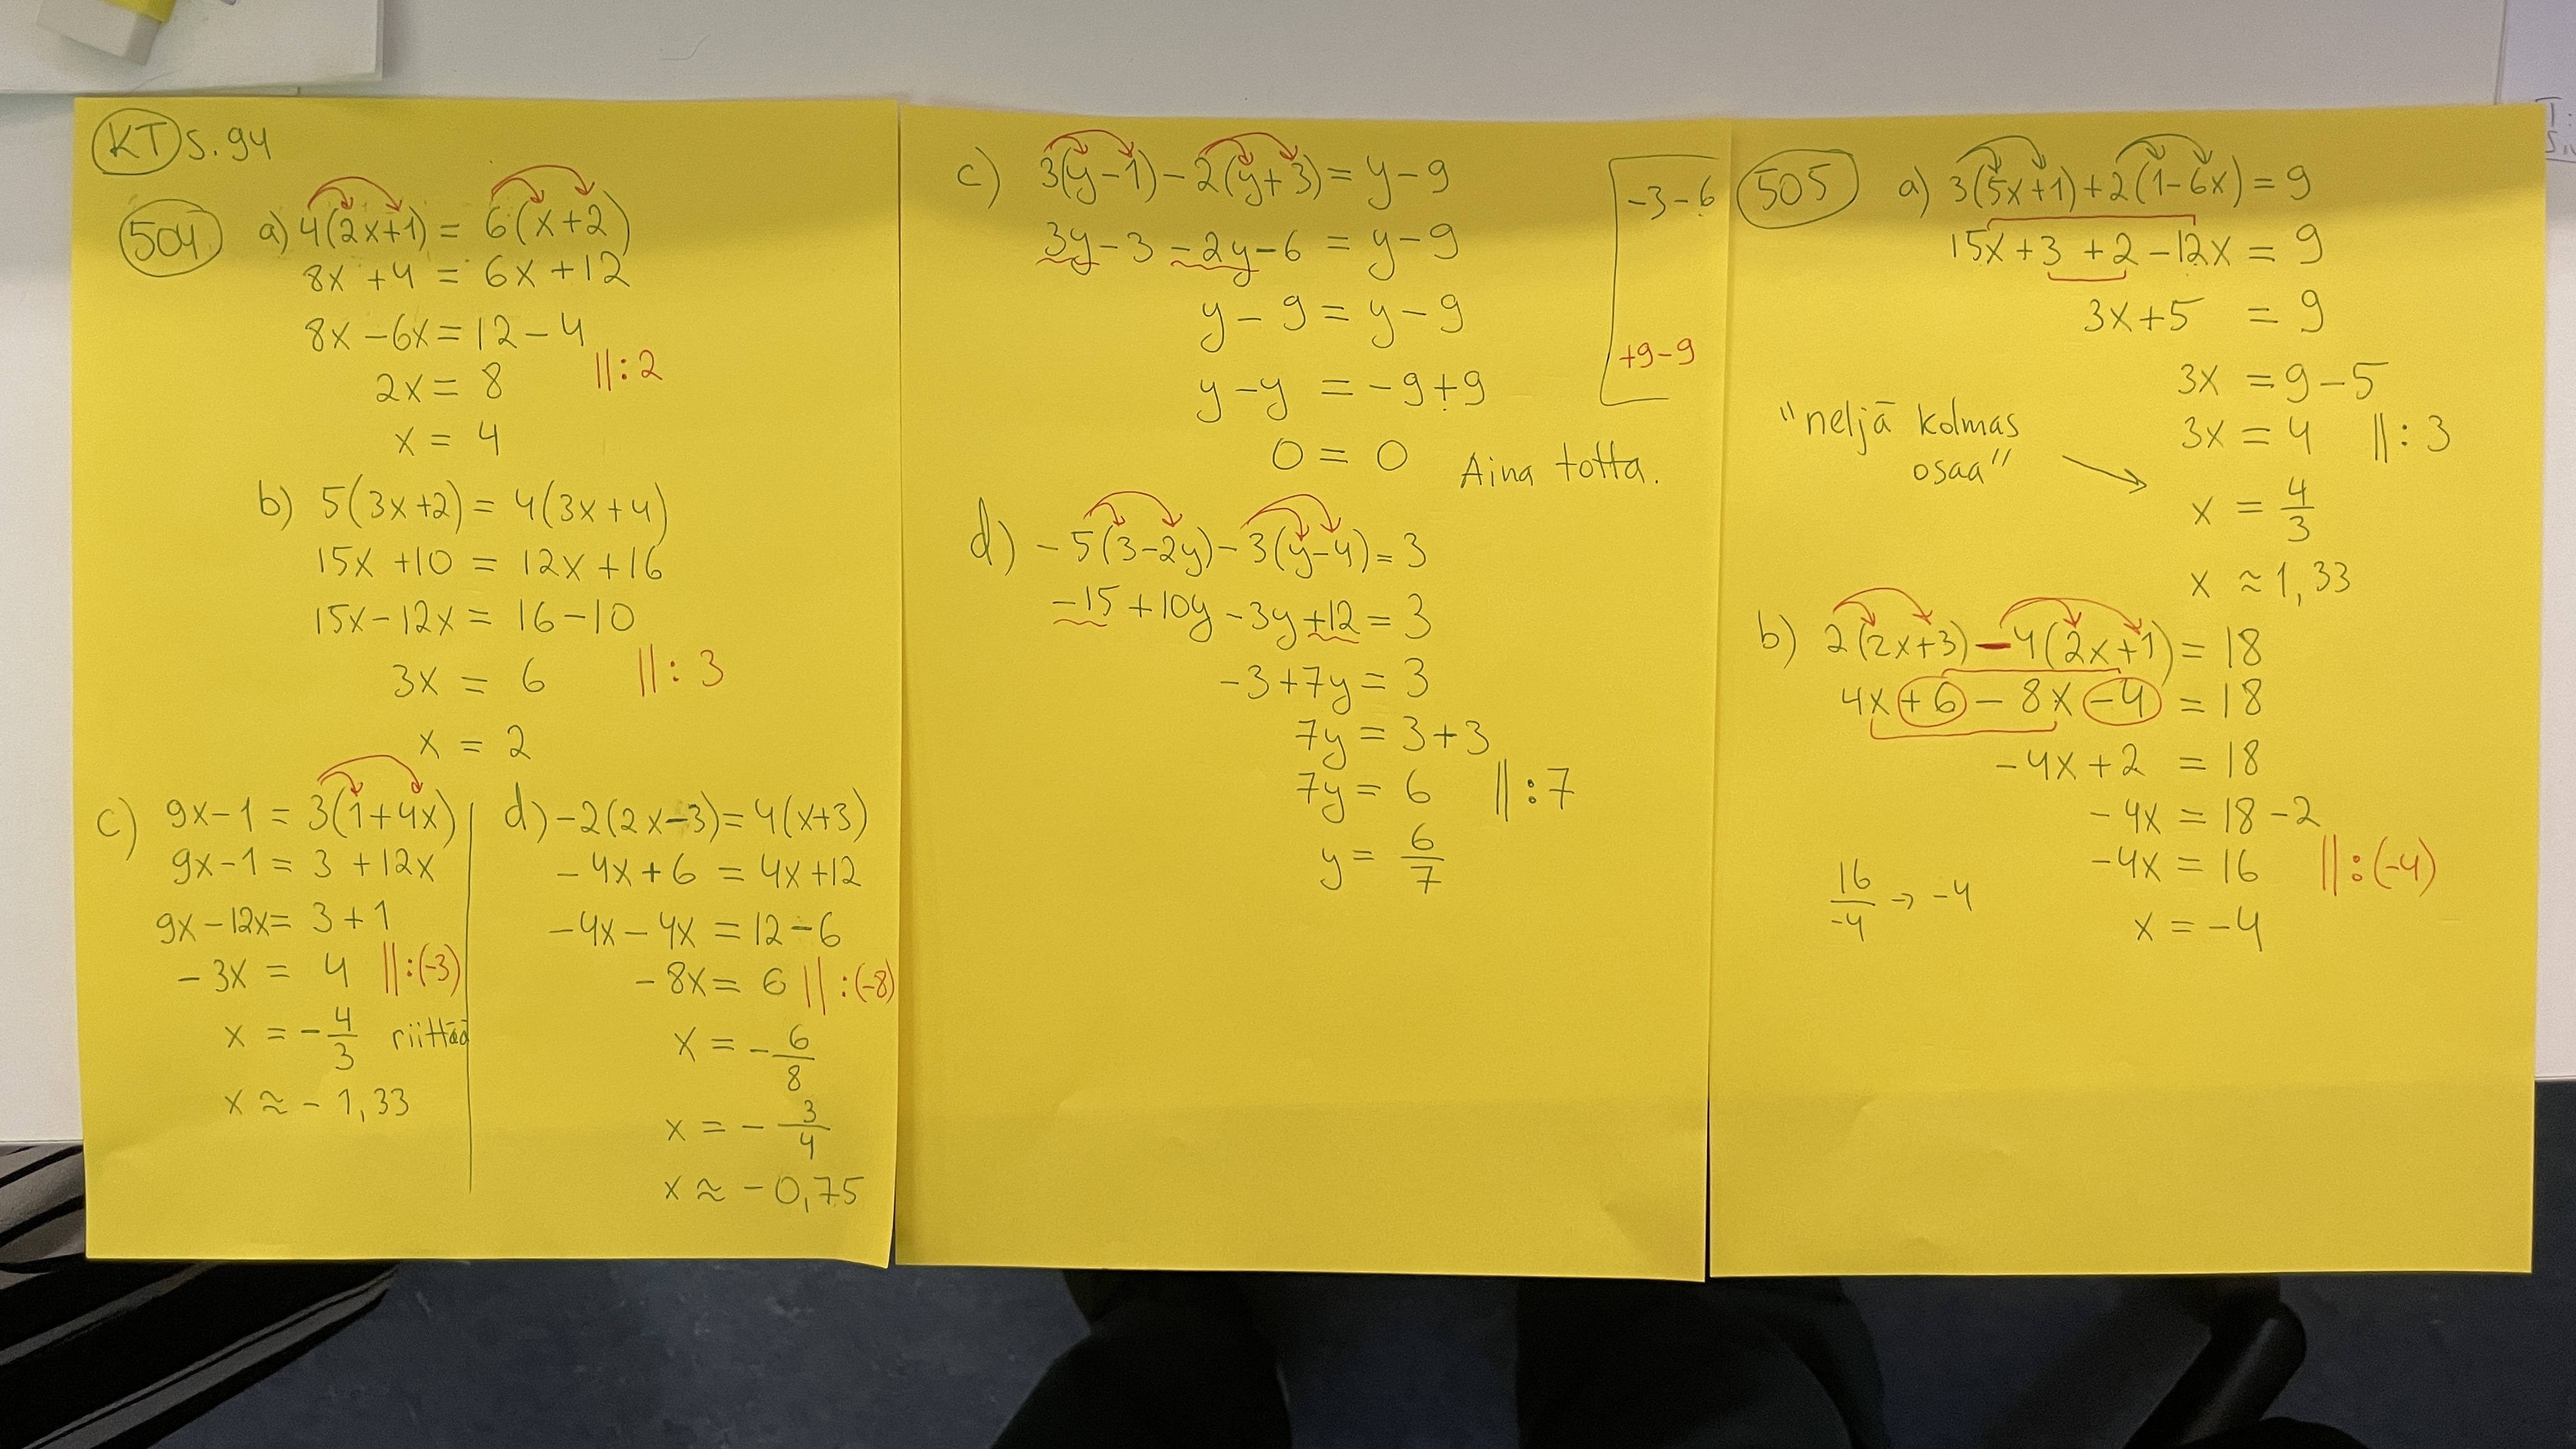 KT s. 94
504 a) 4(2x+1) = 6(x+2)
8x +4 = 6x +12
8x -6x = 12 - 4
2x = 8 ||:2
x = 4
b) 5(3x+2) = 4(3x+4)
15x +10 = 12x +16
15x - 12x = 16 -10
3x = 6 ||:3
x = 2
c) 9x-1 = 3(1+4x)
9x-1 = 3 +12x
9x -12x = 3 +1
-3x = 4 ||:(-3)
x = -4/3 riittää
x ≈ - 1,33
d) -2(2x-3) = 4(x+3)
-4x + 6 = 4x +12
-4x - 4x = 12 - 6
-8x = 6 ||:(-8)
x = -6/8
x = -3/4
x ≈ -0,75
c) 3(y-1) - 2(y+3) = y - 9
3y - 3 - 2y - 6 = y - 9
y - 9 = y - 9
y - y = -9 + 9
0 = 0 Aina totta.
-3-6
+9-9
d) -5(3-2y) - 3(y-4) = 3
-15 +10y -3y +12 = 3
-3+7y = 3
7y = 3+3
7y = 6 ||:7
y = 6/7
505 a) 3(5x+1) + 2(1-6x) = 9
15x +3 +2 -12x = 9
3x+5 = 9
3x = 9-5
3x = 4 ||:3
"neljä kolmas
osaa"
x = 4/3
x ≈ 1,33
b) 2(2x+3) - 4(2x+1) = 18
4x +6 - 8x -4 = 18
-4x +2 = 18
-4x = 18 -2
-4x = 16 ||:(-4)
16/-4 → -4
x = -4